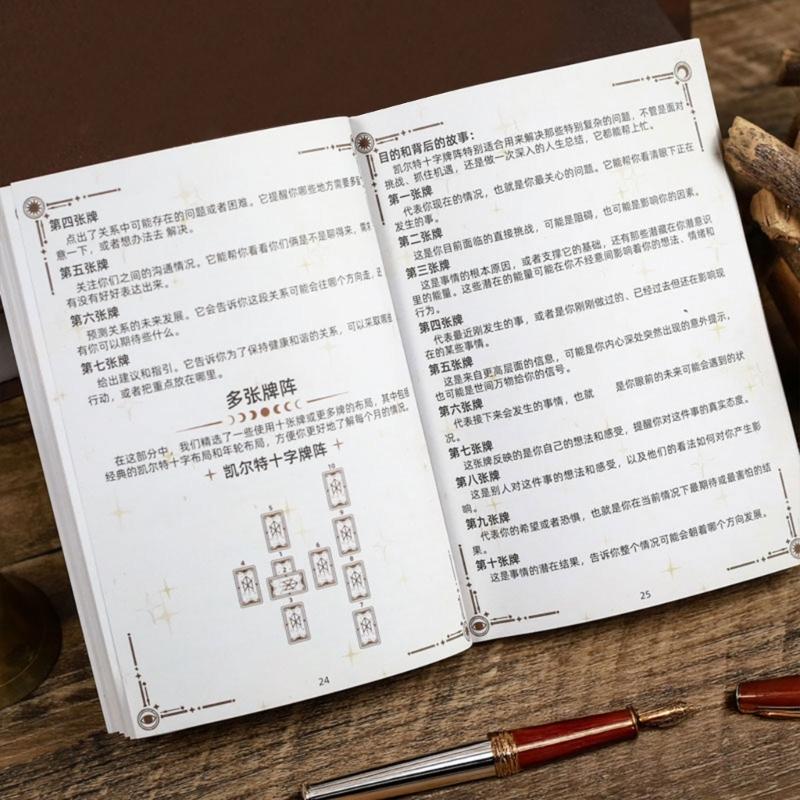 第四张牌
点出了关系中可能存在的问题或者困难。它提醒你哪些地方需要多
意一下，或者想办法去 解决。
第五张牌
关注你们之间的沟通情况。它能帮你看看你们俩是不是聊得来，需
有没有好好表达出来。
第六张牌
预测关系的未来发展。它会告诉你这段关系可能会往哪个方向走，还
有你可以期待些什么。
第七张牌
给出建议和指引。它告诉你为了保持健康和谐的关系，可以采取哪
行动，或者把重点放在哪里。
多张牌阵
在这部分中，我们精选了一些使用十张牌或更多牌的布局，其中包
经典的凯尔特十字布局和年轮布局，方便你更好地了解每个月的情况。
凯尔特十字牌阵
10
5
9
2
4
6
8
3
7
24
目的和背后的故事：
凯尔特十字牌阵特别适合用来解决那些特别复杂的问题，不管是面对
挑战、抓住机遇，还是做一次深入的人生总结，它都能帮上忙。
第一张牌
代表你现在的情况，也就是你最关心的问题。它能帮你看清眼下正在
发生的事。
第二张牌
这是你目前面临的直接挑战，可能是阻碍，也可能是影响你的因素。
第三张牌
这是事情的根本原因，或者支撑它的基础，还有那些潜藏在你潜意识
里的能量。这些潜在的能量可能在你不经意间影响着你的想法、情绪和
行为。
第四张牌
代表最近刚发生的事，或者是你刚刚做过的、已经过去但还在影响现
在的某些事情。
第五张牌
这是来自更高层面的信息，可能是你内心深处突然出现的意外提示，
也可能是世间万物给你的信号。
第六张牌
代表接下来会发生的事情，也就 是你眼前的未来可能会遇到的状
况。
第七张牌
这张牌反映的是你自己的想法和感受，提醒你对这件事的真实态度。
第八张牌
这是别人对这件事的想法和感受，以及他们的看法如何对你产生影
响。
第九张牌
代表你的希望或者恐惧，也就是你在当前情况下最期待或最害怕的结
果。
第十张牌
这是事情的潜在结果，告诉你整个情况可能会朝着哪个方向发展。
25